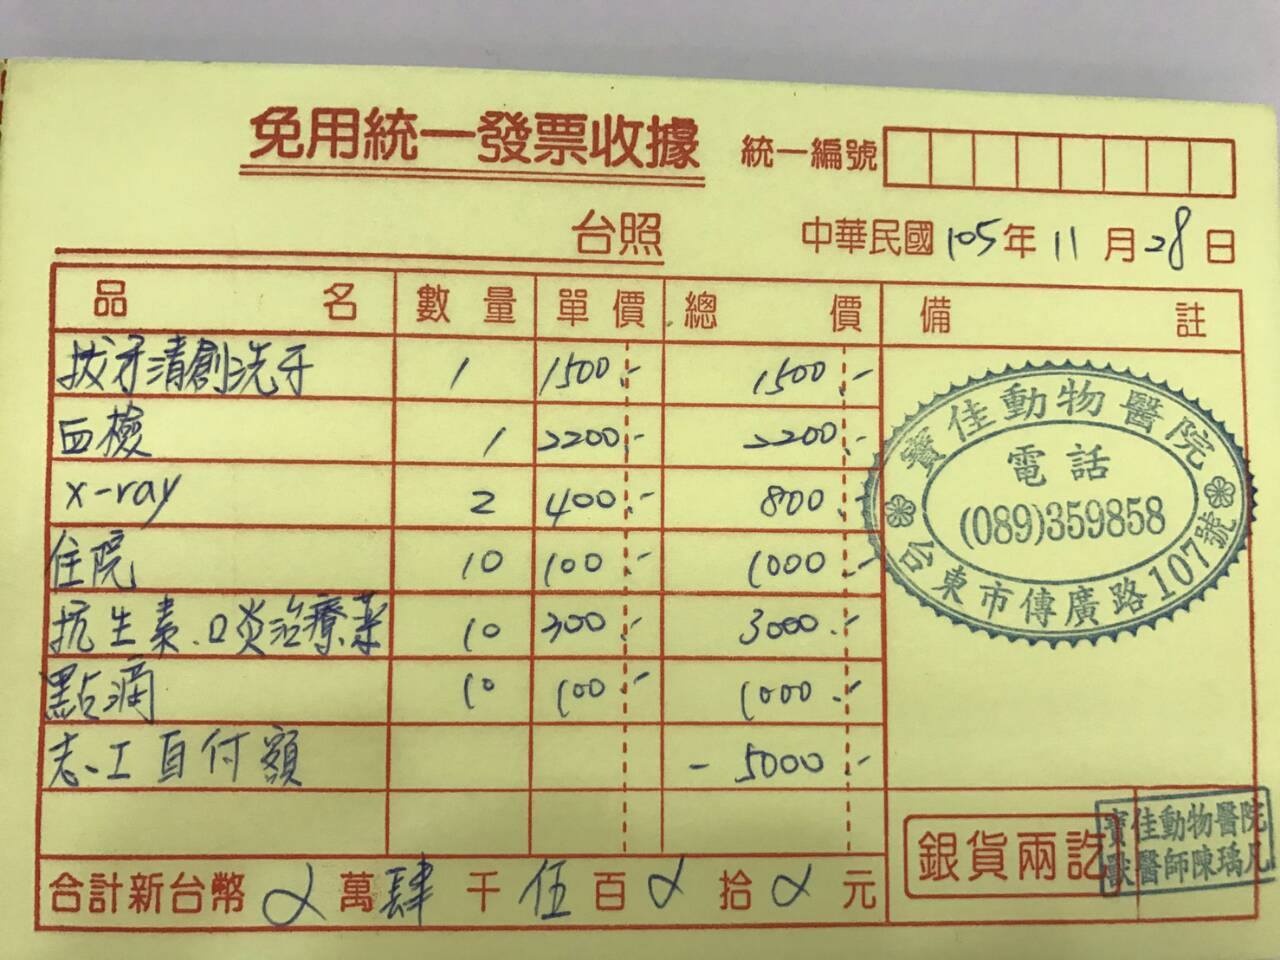 免用統一發票收據 統一編號
台照 中華民國105年11月28日
品名 數量 單價 總價 備註
拔牙清創洗牙 1 1500.- 1500.-
血檢 1 2200.- 2200.-
x-ray 2 400.- 800.-
住院 10 100.- 1000.-
抗生素、口炎治療藥 10 300.- 3000.-
點滴 10 100.- 1000.-
志工自付額 -5000.-
寶佳動物醫院
電話
(089)359858
台東市傳廣路107號
銀貨兩訖
寶佳動物醫院
獸醫師陳瑀凡
合計新台幣 萬肆千伍百 拾 元